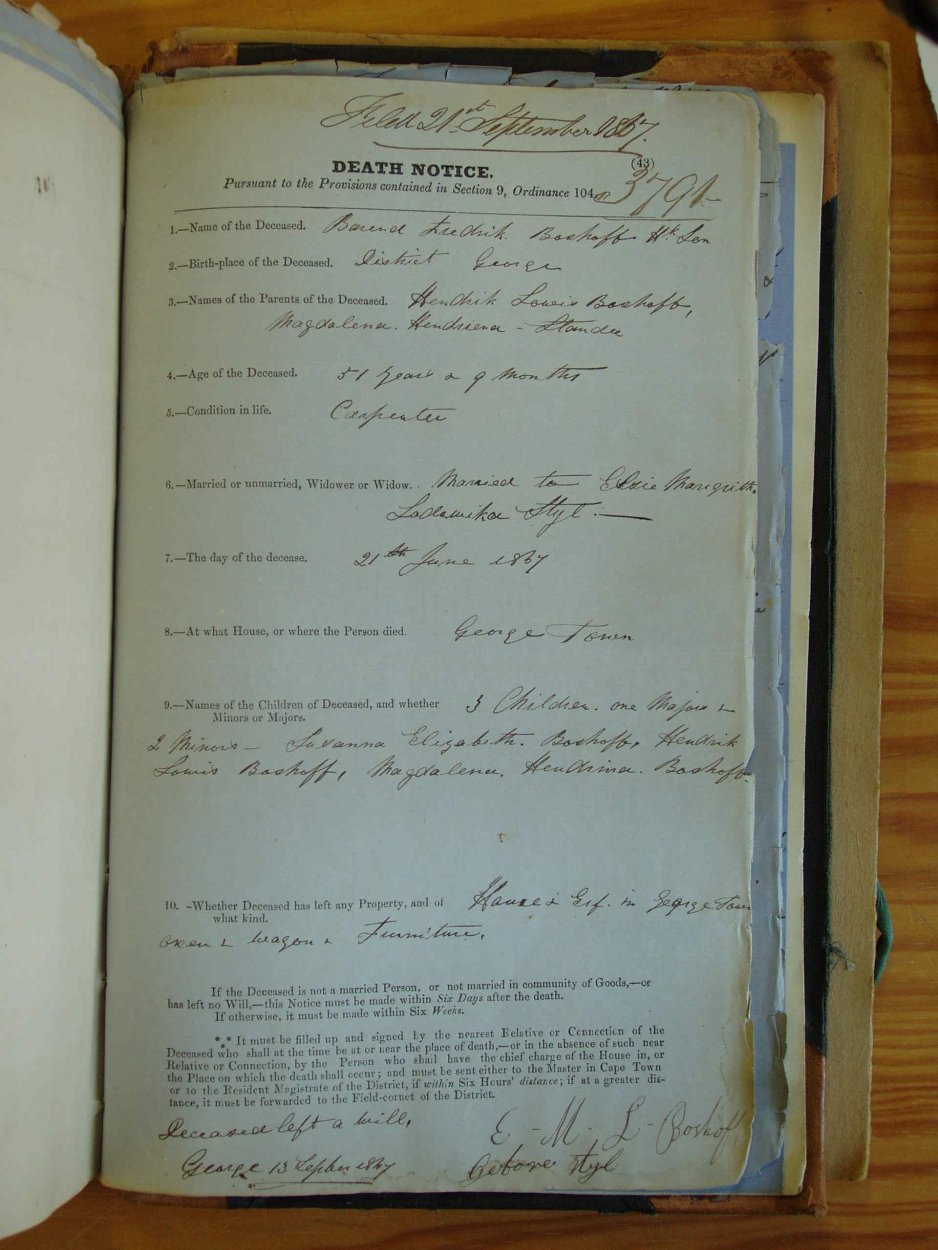 Filed 21st September 1867.
DEATH NOTICE. (43)
Pursuant to the Provisions contained in Section 9, Ordinance 104. 3791
1.—Name of the Deceased. Barend Fredrik Boshoff Hk Son
2.—Birth-place of the Deceased. District George
3.—Names of the Parents of the Deceased. Hendrik Louis Boshoff,
Magdalena. Hendriena - Stander
4.—Age of the Deceased. 51 Years & 9 Months
5.—Condition in life. Carpenter
6.—Married or unmarried, Widower or Widow. Married to Elsie Margritha
Lodewika Styl.—
7.—The day of the decease. 21th June 1867
8.—At what House, or where the Person died. George Town
9.—Names of the Children of Deceased, and whether 3 Children. one Major &
Minors or Majors.
2 Minors — Susanna Elizabeth. Boshoff, Hendrik
Louis Boshoff, Magdalena. Hendrina. Boshoff.
10. -Whether Deceased has left any Property, and of House & Erf. in George Town
what kind.
oxen & wagon & Furniture.
If the Deceased is not a married Person, or not married in community of Goods,—or
has left no Will,—this Notice must be made within Six Days after the death.
If otherwise, it must be made within Six Weeks.
*** It must be filled up and signed by the nearest Relative or Connection of the
Deceased who shall at the time be at or near the place of death,—or in the absence of such near
Relative or Connection, by the Person who shall have the chief charge of the House in, or
the Place on which the death shall occur; and must be sent either to the Master in Cape Town
or to the Resident Magistrate of the District, if within Six Hours' distance; if at a greater dis-
tance, it must be forwarded to the Field-cornet of the District.
Deceased left a will. E - M - L - Boshoff
George 13 Septber 1867 Gebore Styl